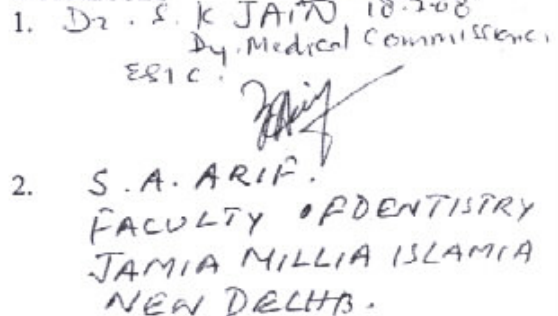 1. Dr. S. K JAIN 18.7.08
Dy. Medical Commissioner,
ESIC.
2. S. A. ARIF.
FACULTY OF DENTISTRY
JAMIA MILLIA ISLAMIA
NEW DELHI.